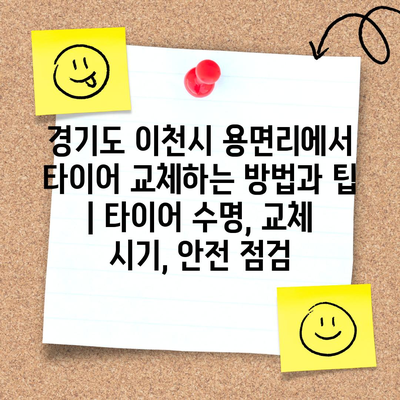 경기도 이천시 용면리에서
타이어 교체하는 방법과 팁
| 타이어 수명, 교체
시기, 안전 점검